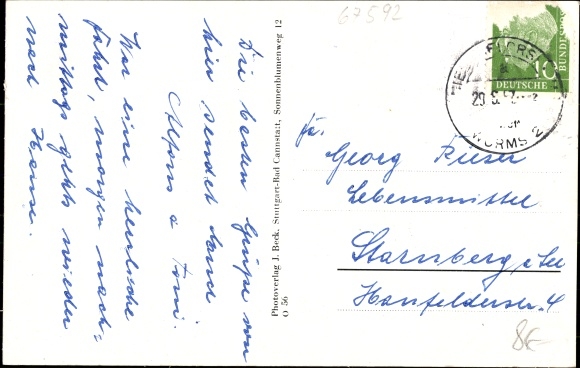 Die besten Grüße von
hier sendet
Alfons u Toni.
War eine herrliche
Fahrt, morgen nach=
mittags gehts wieder
nach Hause.
Photoverlag J. Beck. Stuttgart-Bad Cannstatt, Sonnenblumenweg 12
O 56
67592
DEUTSCHE BUNDESPOST
10
29.
WORMS 2
Georg
Lebensmittel
Starnberg a. See
Hanfelderstr. 4
8€-